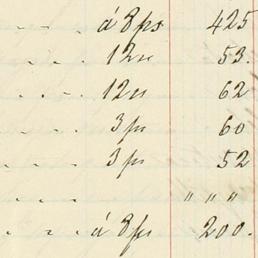 á 8 ps 425
12 u 53.
12 u 62
3 ps 60
3 ps 52
" " "
á 8 ps 200.